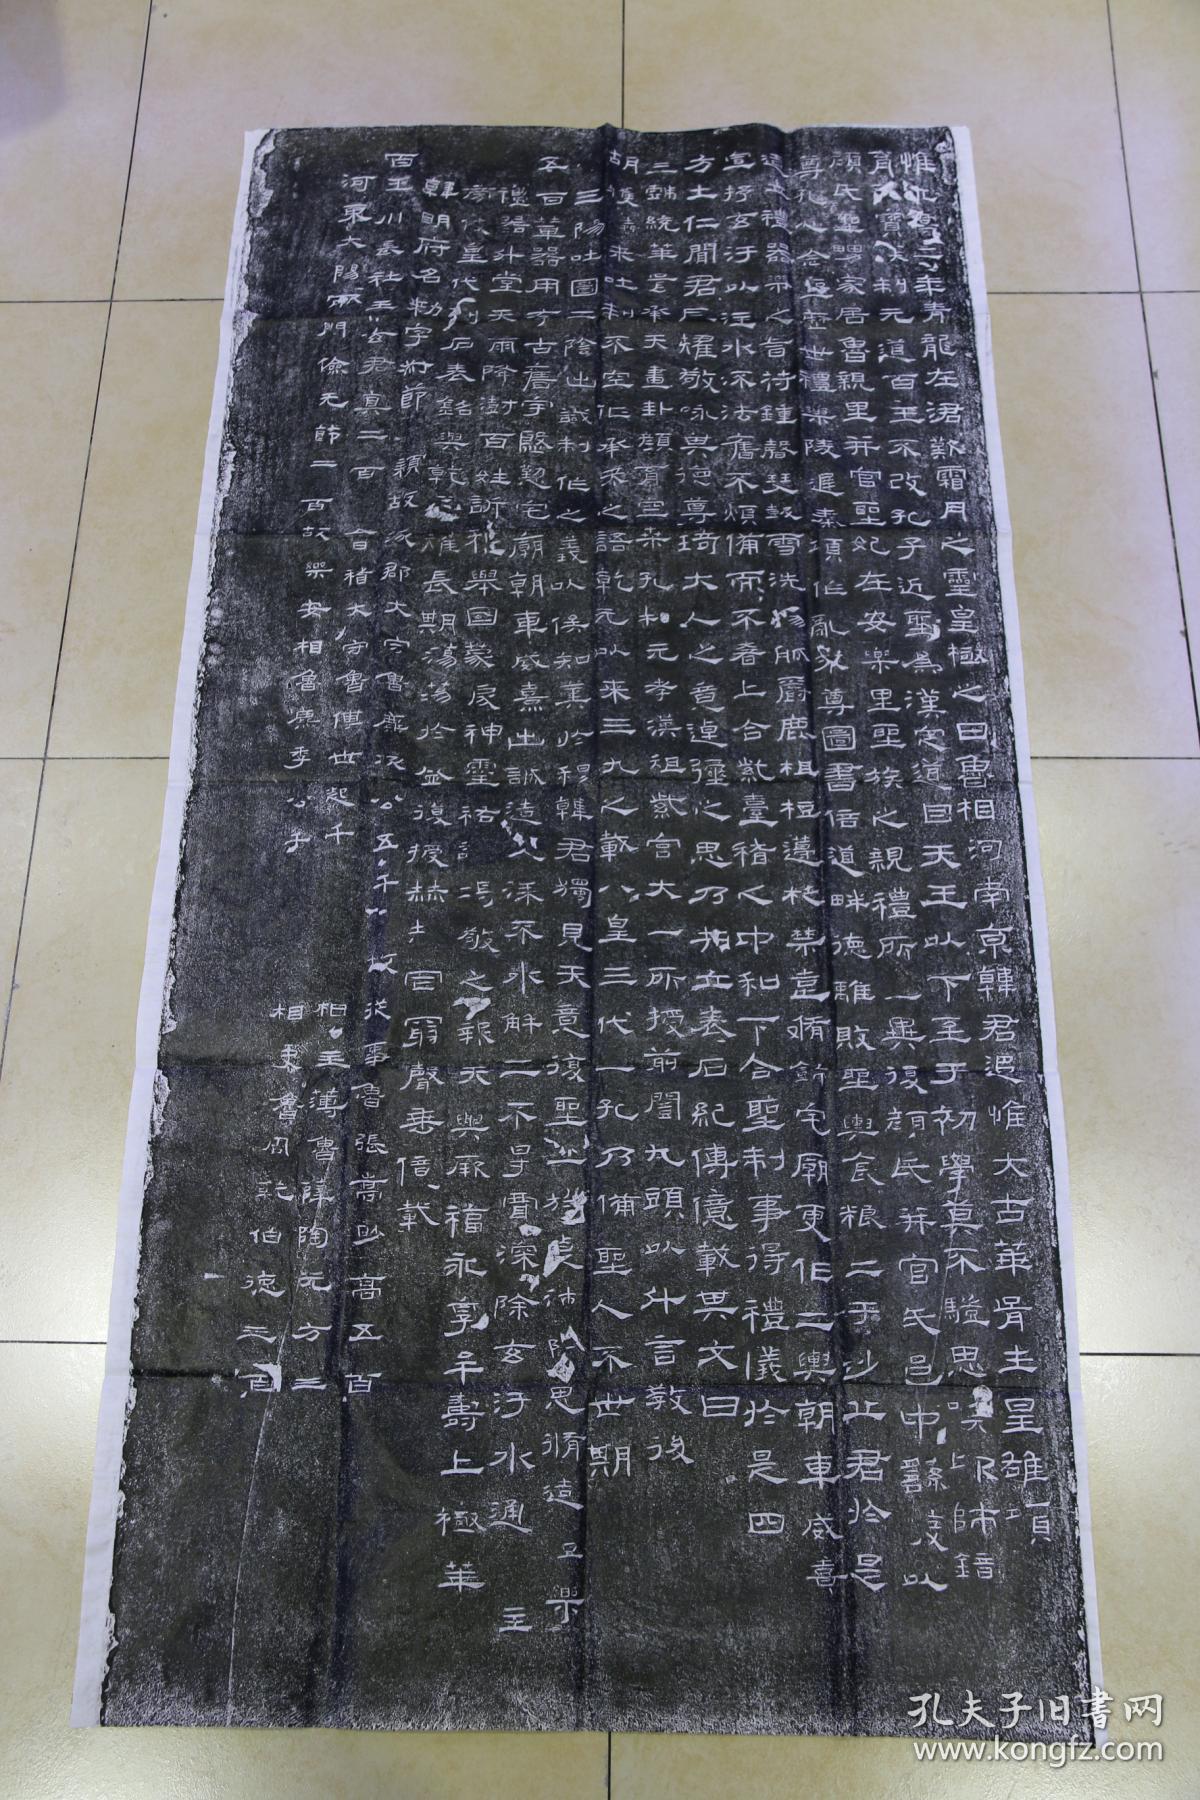 惟永壽二年青龍在涒歎霜月之靈皇極之日魯相河南京韓君追惟大古華胥生皇雄項
育寶制元道百王不改孔子近聖為漢定道自天王以下至于初學莫不驗思嘆卬師鏡
顏氏聖舅家居魯親里并官聖妃在安樂里聖族之親禮所一異復顏氏并官氏邑中繇發以
尊孔心念聖歷世禮樂陵遲秦項作亂不尊圖書倍道畔德離敗聖輿食粮亡于沙丘君於是
造立禮器樂之音符鍾磬瑟鼓雷洗觴觚爵鹿柤梪籩柉禁壺脩飾宅廟更作二輿朝車威喜
宣抒玄汙以注水不法舊不煩備而不奢上合紫臺稽之中和下合聖制事得禮儀於是四
方土仁聞君風耀敬咏其德尊琦大人之意逴彌之思乃共立表石紀傳億載其文曰
統華胥承天畫卦顏育空桑孔制元孝漢祖紫宮大一所授前闓九頭以什言教後
來吐制不空作承天之語乾元以來三九之載八皇三代一孔乃備聖人不世期
三陽吐圖二陰出讖制作之義以俟知奧於穆韓君獨見天意復聖二族逴越絕思脩造五樂
五百輦器用存古舊宇慇懃宅廟朝車威熹出誠造更漆不水解工不爭賈深除玄汙水通主
禮器升堂天雨降澍百姓訢和舉國蒙慶神靈祐誠竭敬之報天與厥福永享牟壽上極華
旁伎皇代刊石表銘與乾運燿長期蕩蕩於盛復授赫赫罔窮聲垂億載
韓明府名勑字叔節 潁故涿郡大守魯麃次公五千 故從事魯張嵩眇高五百
百王川長社王玄君真二百 會稽大守魯傅世起千 相主薄魯薛陶元方三
河東大陽西門儉元節二百故樂安相魯麃季公千 相史魯周乾伯德三百
孔夫子旧书网
www.kongfz.com